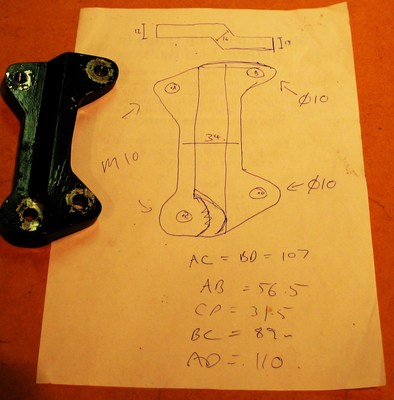 12
14
13
B
Ø10
34
M10
Ø10
AC = BD = 107
AB = 56.5
CD = 31.5
BC = 89
AD = 110